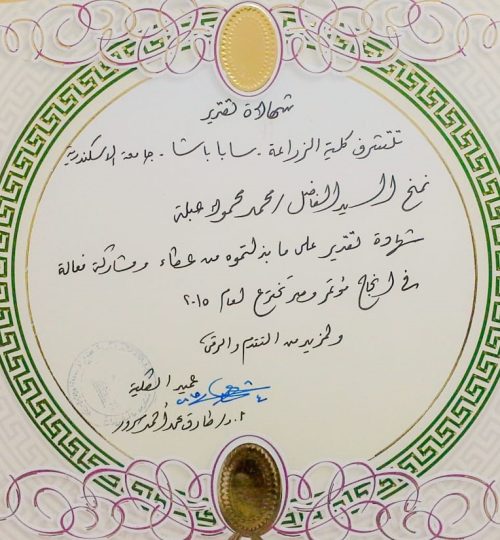 شهادة تقدير
تتشرف كلية الزراعة - سابا باشا - جامعة الاسكندرية
بمنح السيد الفاضل / محمد محمود عبلة
شهادة تقدير على ما بذلتموه من عطاء ومشاركة فعالة
فى انجاح مؤتمر مصر تخترع لعام ٢٠١٥
ولمزيد من التقدم والرقى
عميد الكلية
ا.د/ طارق محمد أحمد سرور